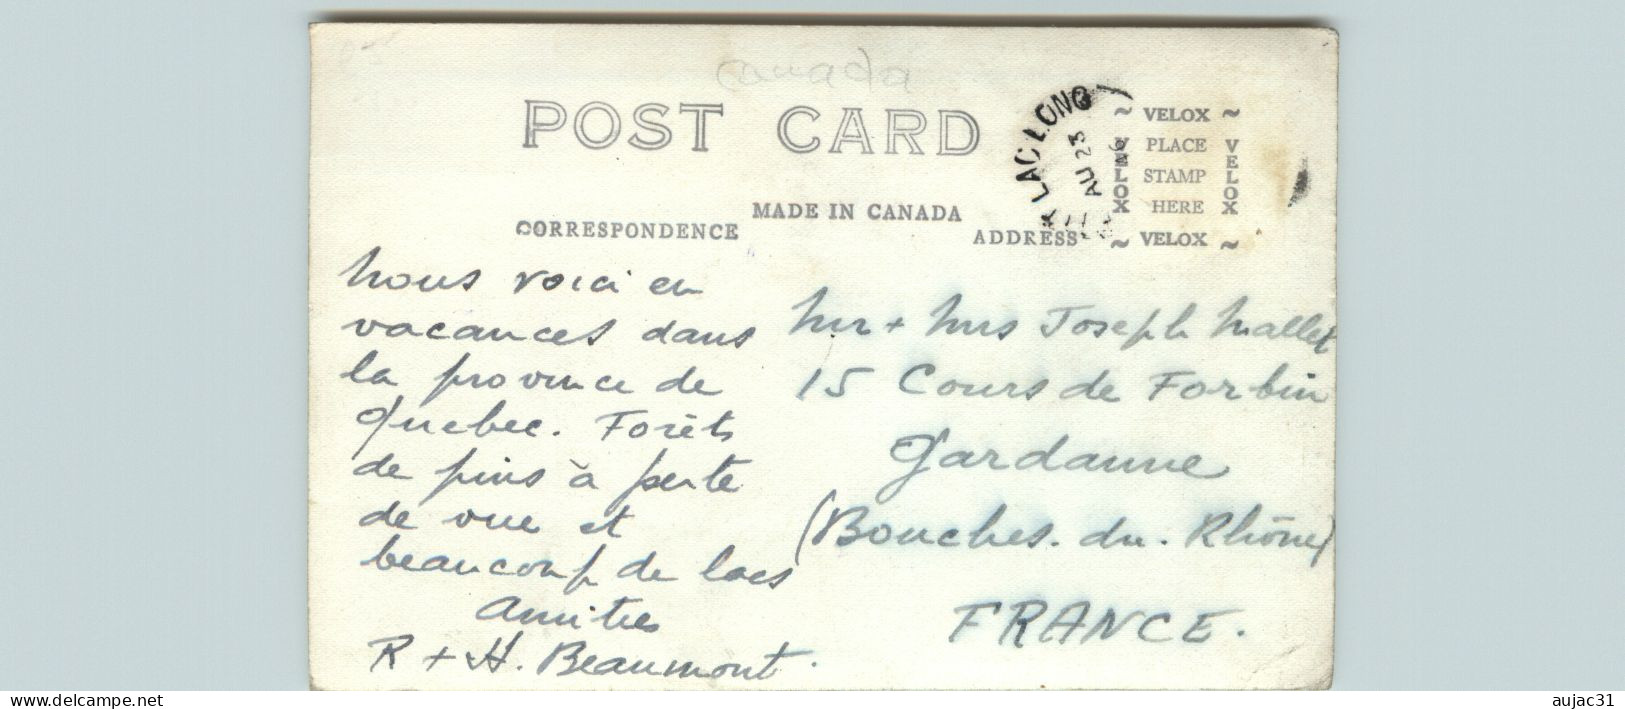 Canada
POST CARD
LAC LONG
AU 23
~ VELOX ~
VELOX PLACE VELOX
STAMP
HERE
~ VELOX ~
MADE IN CANADA
CORRESPONDENCE
ADDRESS
Nous voici en
vacances dans
la province de
Quebec. Forêts
de pins à perte
de vue et
beaucoup de lacs
Amitiés
R + H. Beaumont.
Mr + Mrs Joseph Mallet
15 Cours de Forbin
Gardanne
(Bouches. du. Rhône)
FRANCE.
aujac31